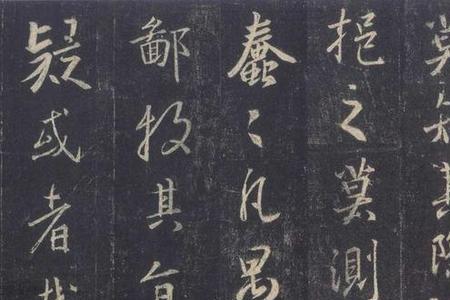 莫知其際
挹之莫測
蠢〻凡愚
鄙投其旨
疑或者哉